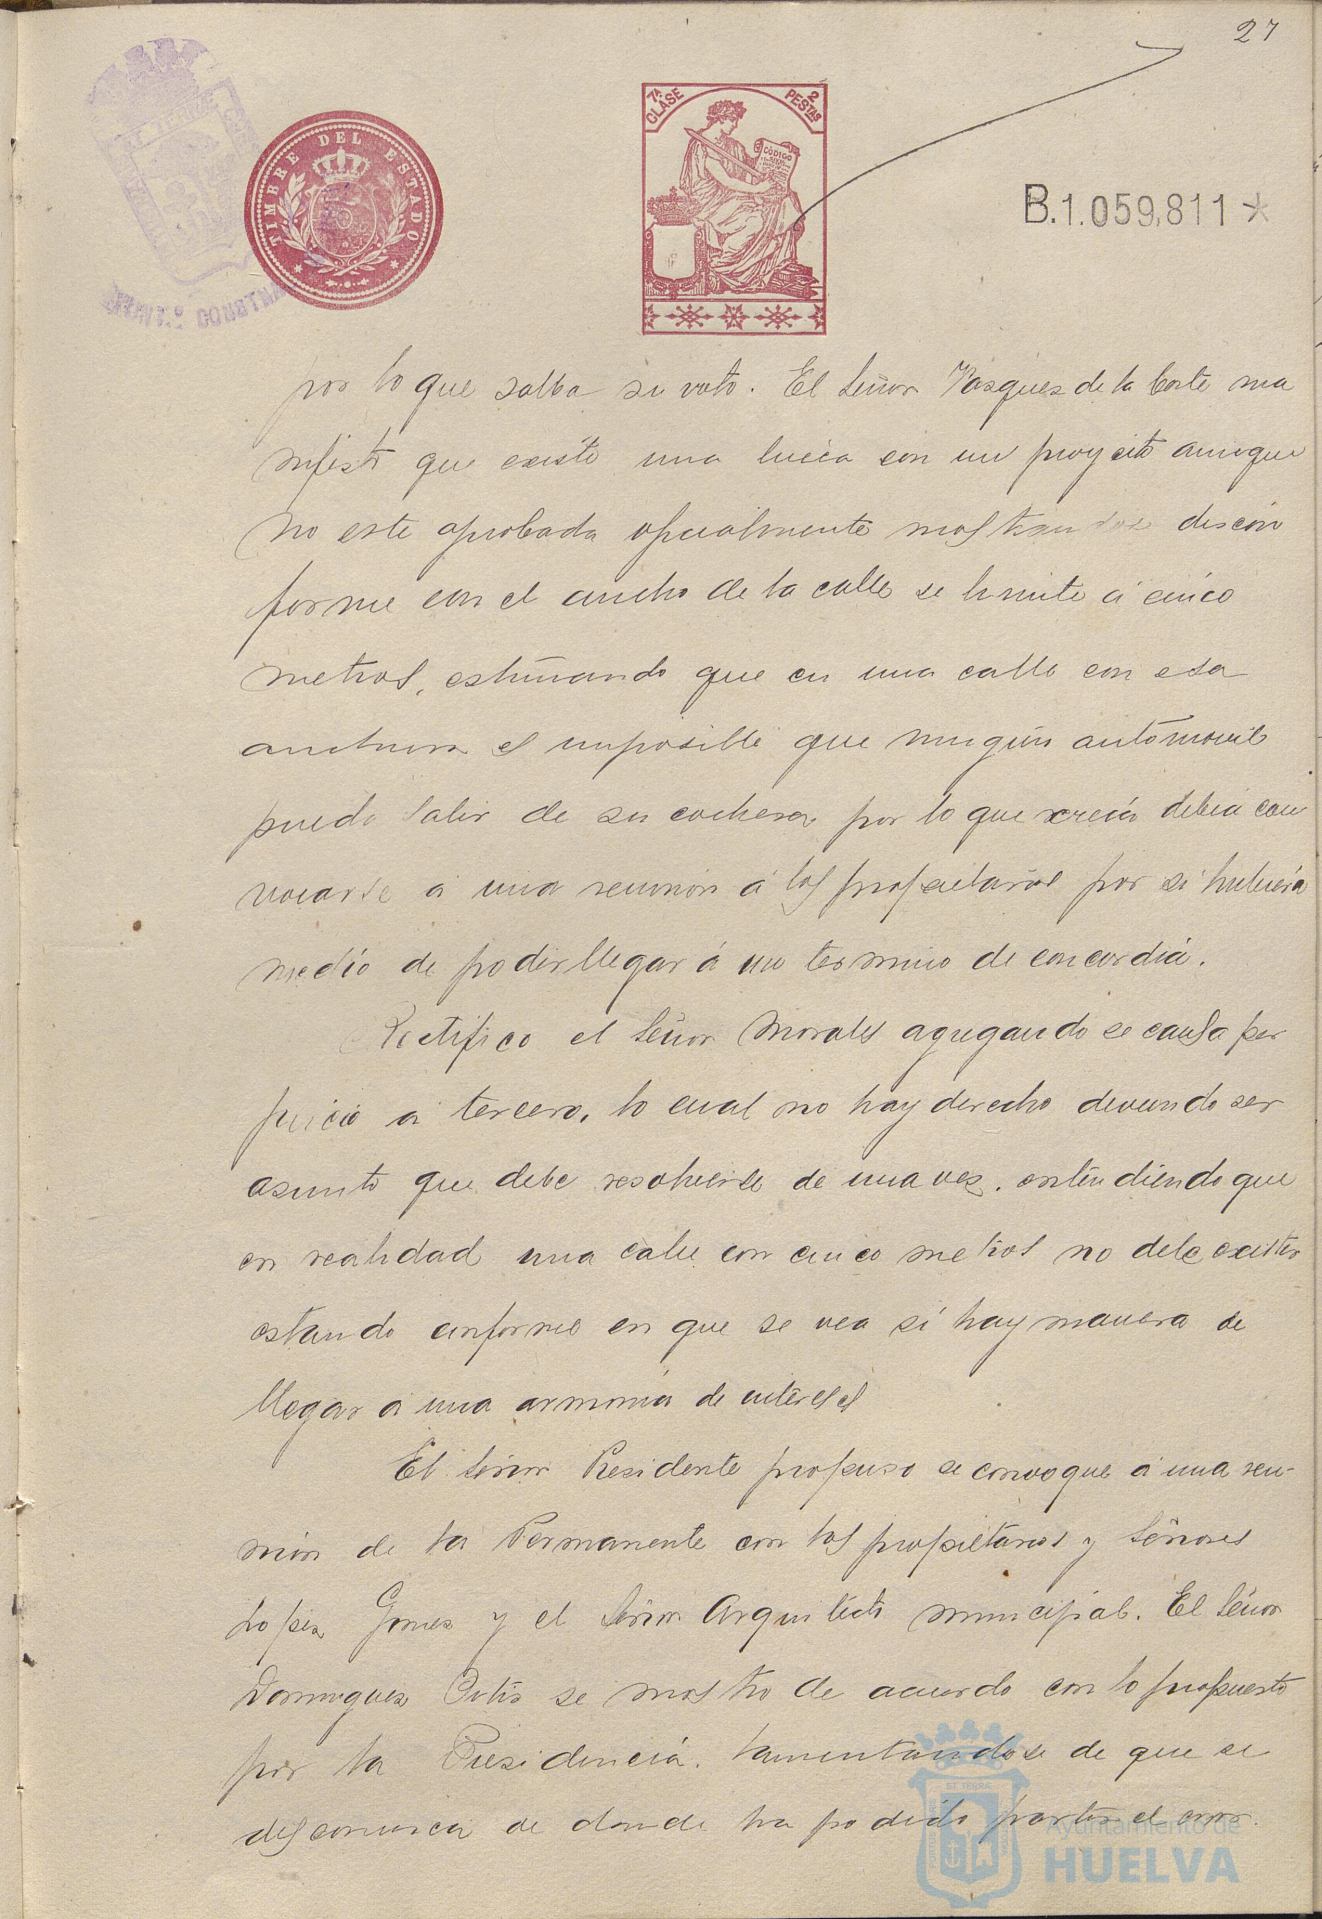 27
TIMBRE DEL ESTADO
7ª CLASE
2 PESTAS
CODIGO
B.1.059,811*
por lo que salba su voto. El Señor Vasques de la Corte ma
nifestó que existe una linea con un proyecto aunque
no este aprobada oficialmente mostrandose discon
forme con el ancho de la calle se limite á cinco
metros, estimando que en una calle con esa
anchura es imposible que ningún automovil
pueda salir de su cochera por lo que creía debia con
vocarse a una reunión á los propietarios por si hubiera
medio de poder llegar á un termino de concordia.
Rectifico el Señor Morales agregando se causa per
juicio a tercero, lo cual no hay derecho ser
asunto que debe resolverse de una ves. entendiendo que
en realidad una calle con cinco metros no debe existir
estando conforme en que se vea si hay manera de
llegar a una armonia de intereses
El Señor Presidente propuso se convoque á una reu-
nión de la Permanente con los propietarios y Señores
Lopez Gomez y el Señor Arquitecto municipal. El Señor
Dominguez Ortis se mostro de acuerdo con lo propuesto
por la Presidencia. lamentandose de que se
desconozca de donde ha podido partir el error.
Ayuntamiento de
HUELVA